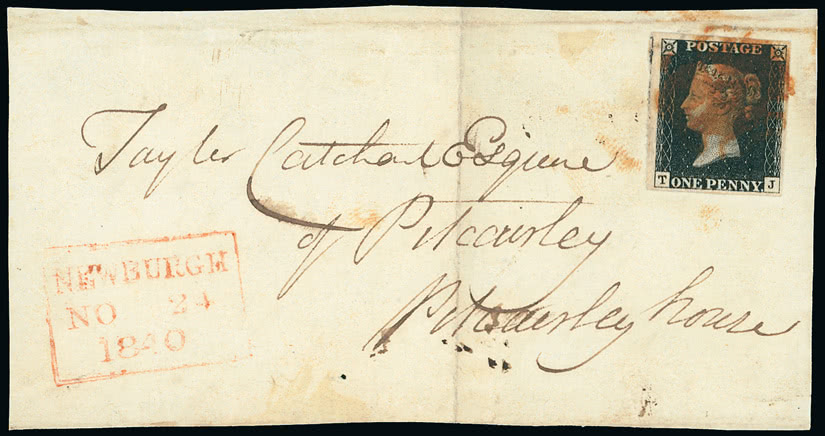 POSTAGE
T ONE PENNY J
Tayler Cathcart Esquire
of Pitcairley
Pitcairley house
NEWBURGH
NO 24
1840